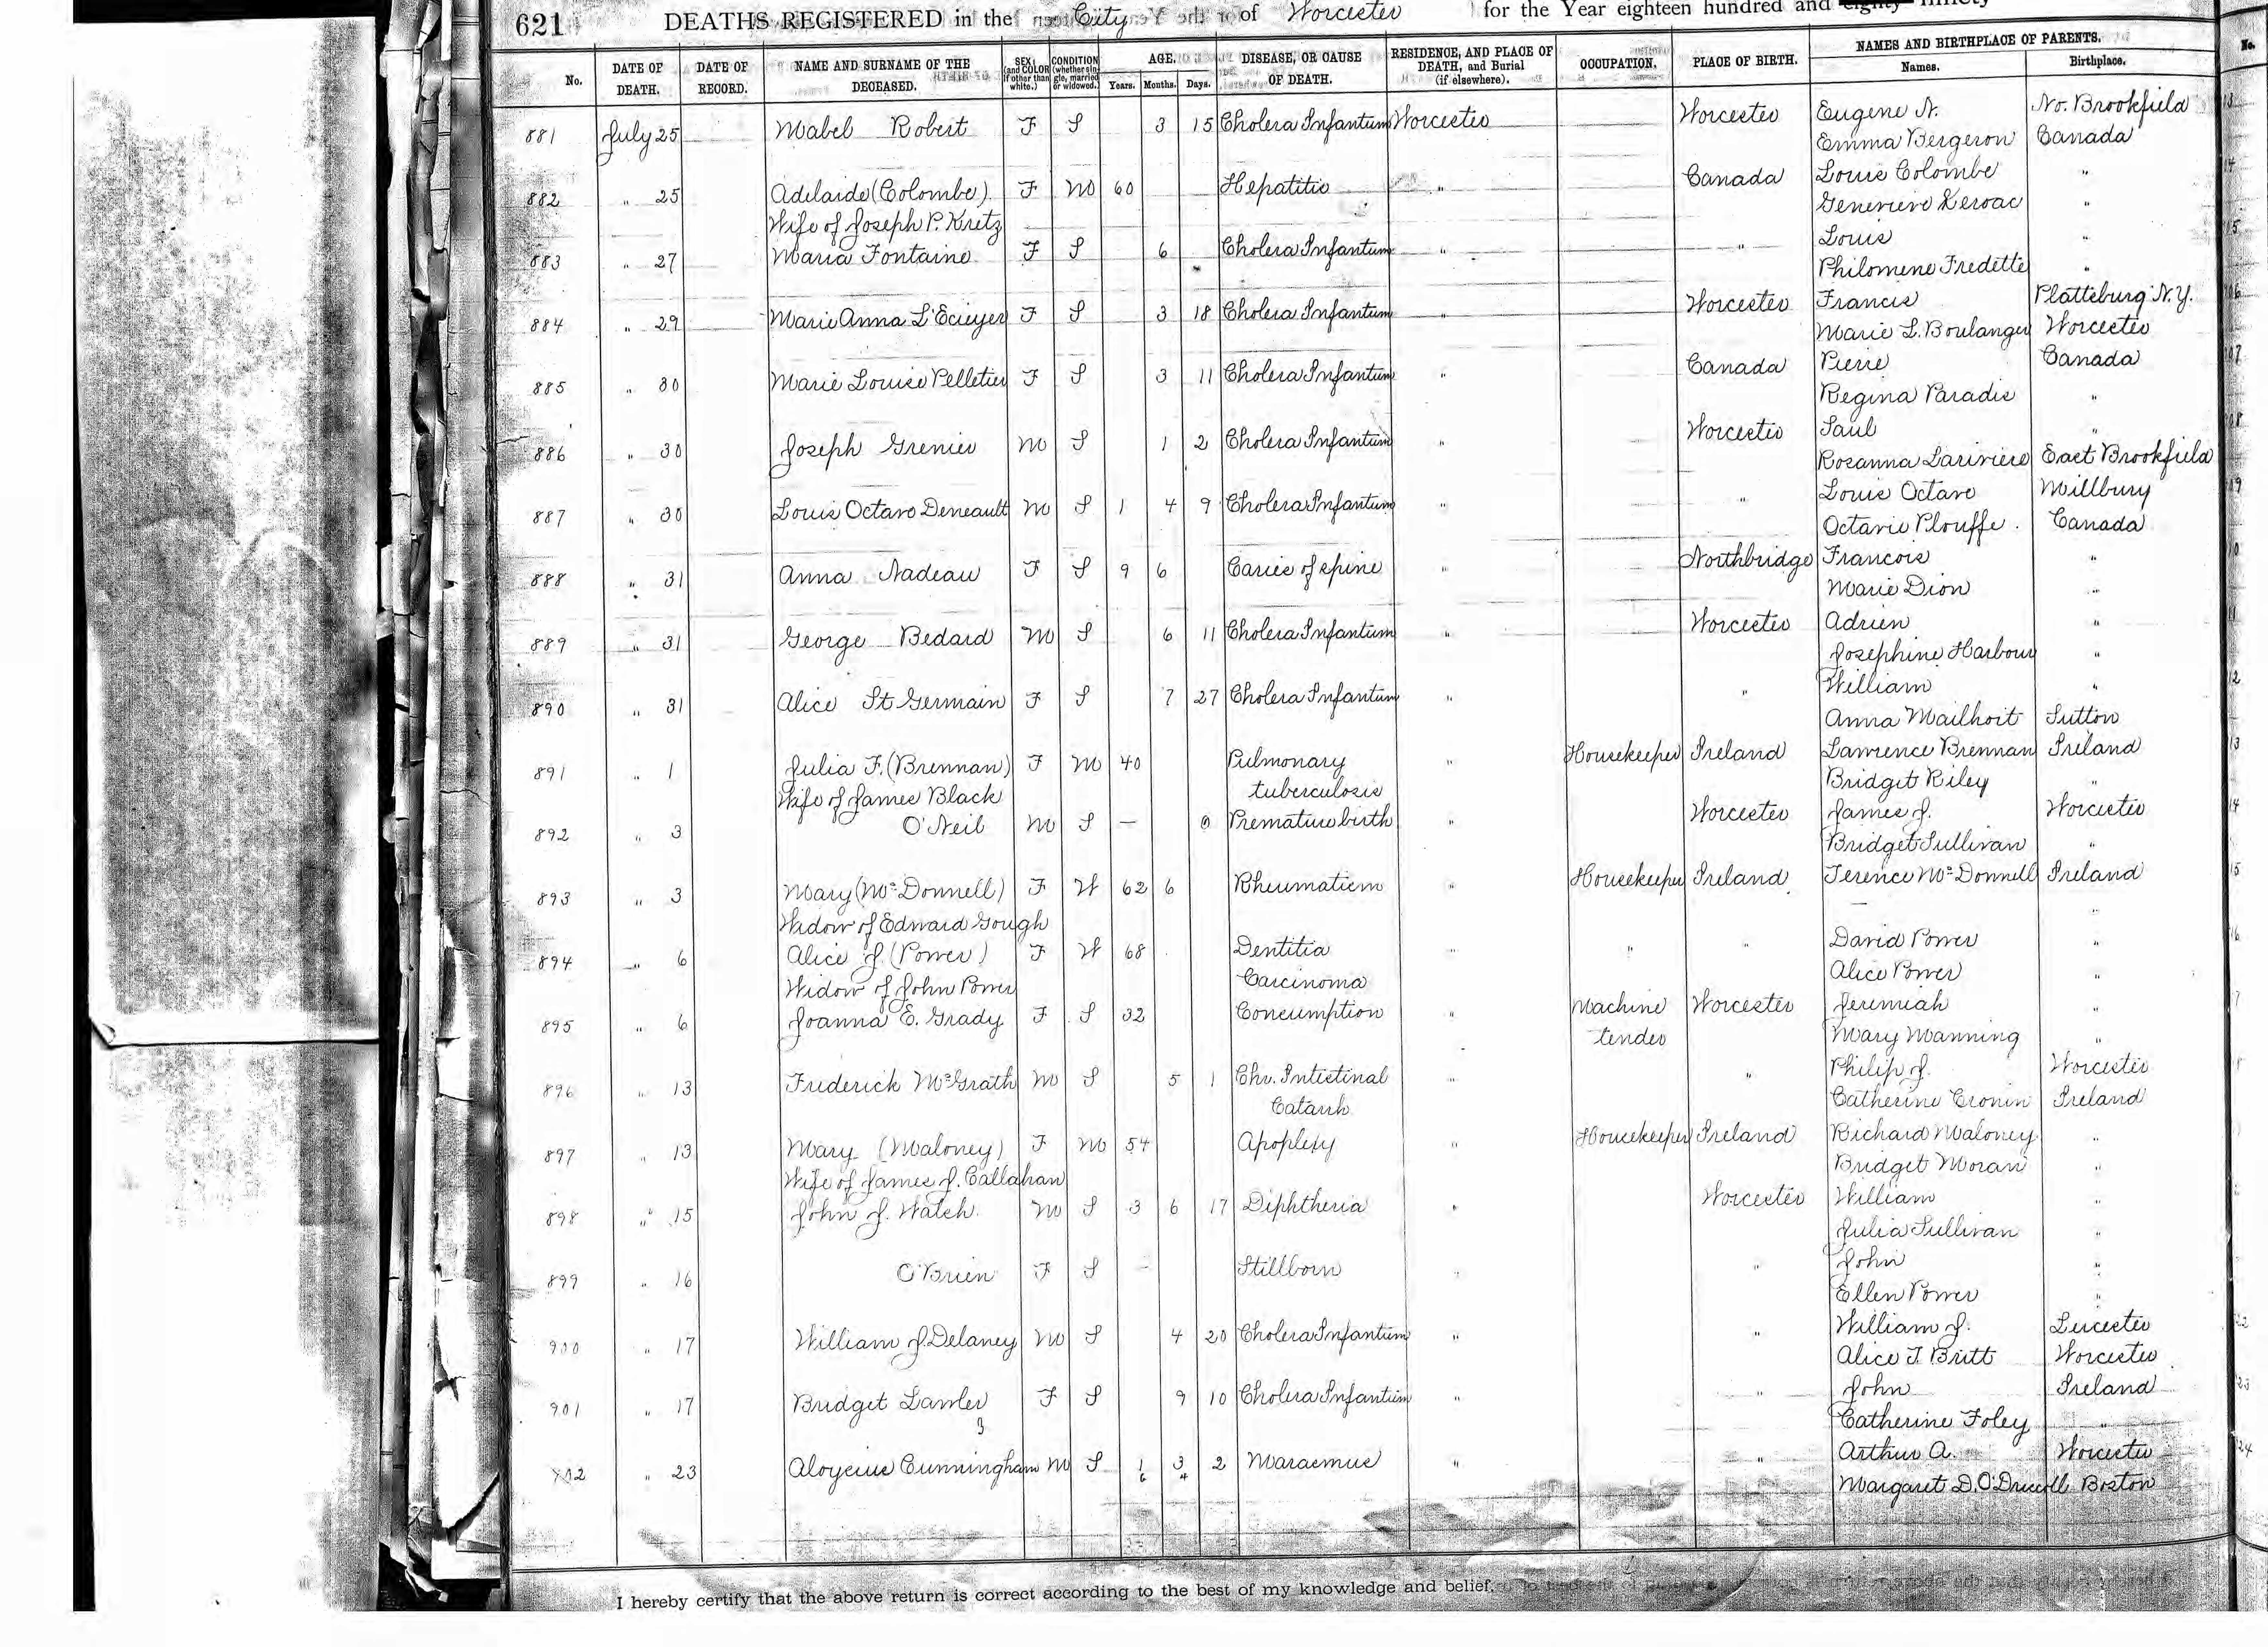 621 DEATHS REGISTERED in the City of Worcester for the Year eighteen hundred and eighty ninety
No. DATE OF DEATH. DATE OF RECORD. NAME AND SURNAME OF THE DECEASED. SEX (and COLOR if other than white.) CONDITION (whether single, married or widowed.) AGE. Years. Months. Days. DISEASE, OR CAUSE OF DEATH. RESIDENCE, AND PLACE OF DEATH, and Burial (if elsewhere). OCCUPATION. PLACE OF BIRTH. NAMES AND BIRTHPLACE OF PARENTS. Names. Birthplace. No.
881 July 25 Mabel Robert F S 3 15 Cholera Infantum Worcester Worcester Eugene N. No. Brookfield
Emma Bergeron Canada
882 " 25 Adelaide (Colombe) F M 60 Hepatitis " Canada Louis Colombe "
Wife of Joseph P. Kretz Genevieve Keroac "
883 " 27 Maria Fontaine F S 6 Cholera Infantum " " Louis "
Philomene Fredette "
884 " 29 Marie Anna L'Ecuyer F S 3 18 Cholera Infantum " Worcester Francis Platteburg N.Y.
Marie L. Boulanger Worcester
885 " 30 Marie Louise Pelletier F S 3 11 Cholera Infantum " Canada Pierre Canada
Regina Paradis "
886 " 30 Joseph Grenier M S 1 2 Cholera Infantum " Worcester Saul "
Rosanna Lariviere East Brookfield
887 " 30 Louis Octave Deneault M S 1 4 9 Cholera Infantum " " Louis Octave Millbury
Octavie Plouffe. Canada
888 " 31 Anna Nadeau F S 9 6 Caries of spine " Northbridge Francois "
Marie Dion "
889 " 31 George Bedard M S 6 11 Cholera Infantum " Worcester Adrien "
Josephine Harbour "
890 " 31 Alice St Germain F S 7 27 Cholera Infantum " " William "
Anna Mailhoit Sutton
891 " 1 Julia F. (Brennan) F M 40 Pulmonary " Housekeeper Ireland Lawrence Brennan Ireland
Wife of James Black tuberculosis Bridget Riley "
892 " 3 O'Neil M S — 0 Premature birth " Worcester James J. Worcester
Bridget Sullivan "
893 " 3 Mary (McDonnell) F W 62 6 Rheumatism " Housekeeper Ireland Terence McDonnell Ireland
Widow of Edward Gough — "
894 " 6 Alice J. (Power) F W 68 Dentitia " " " David Power "
Widow of John Power Carcinoma Alice Power "
895 " 6 Joanna E. Grady F S 32 Consumption " Machine Worcester Jeremiah "
tender Mary Manning "
896 " 13 Frederick McGrath M S 5 1 Chr. Intestinal " " Philip J. Worcester
Catarrh Catherine Cronin Ireland
897 " 13 Mary (Maloney) F M 54 Apoplexy " Housekeeper Ireland Richard Maloney "
Wife of James J. Callahan Bridget Moran "
898 " 15 John J. Walsh M S 3 6 17 Diphtheria " Worcester William "
Julia Sullivan "
899 " 16 O'Brien F S - Stillborn " " John "
Ellen Power "
900 " 17 William J. Delaney M S 4 20 Cholera Infantum " " William J. Leicester
Alice T. Britt Worcester
901 " 17 Bridget Lawler F S 9 10 Cholera Infantum " " John Ireland
Catherine Foley "
902 " 23 Aloysius Cunningham M S 1 3 2 Marasmus " " Arthur A. Worcester
Margaret D. O'Driscoll Boston
I hereby certify that the above return is correct according to the best of my knowledge and belief.